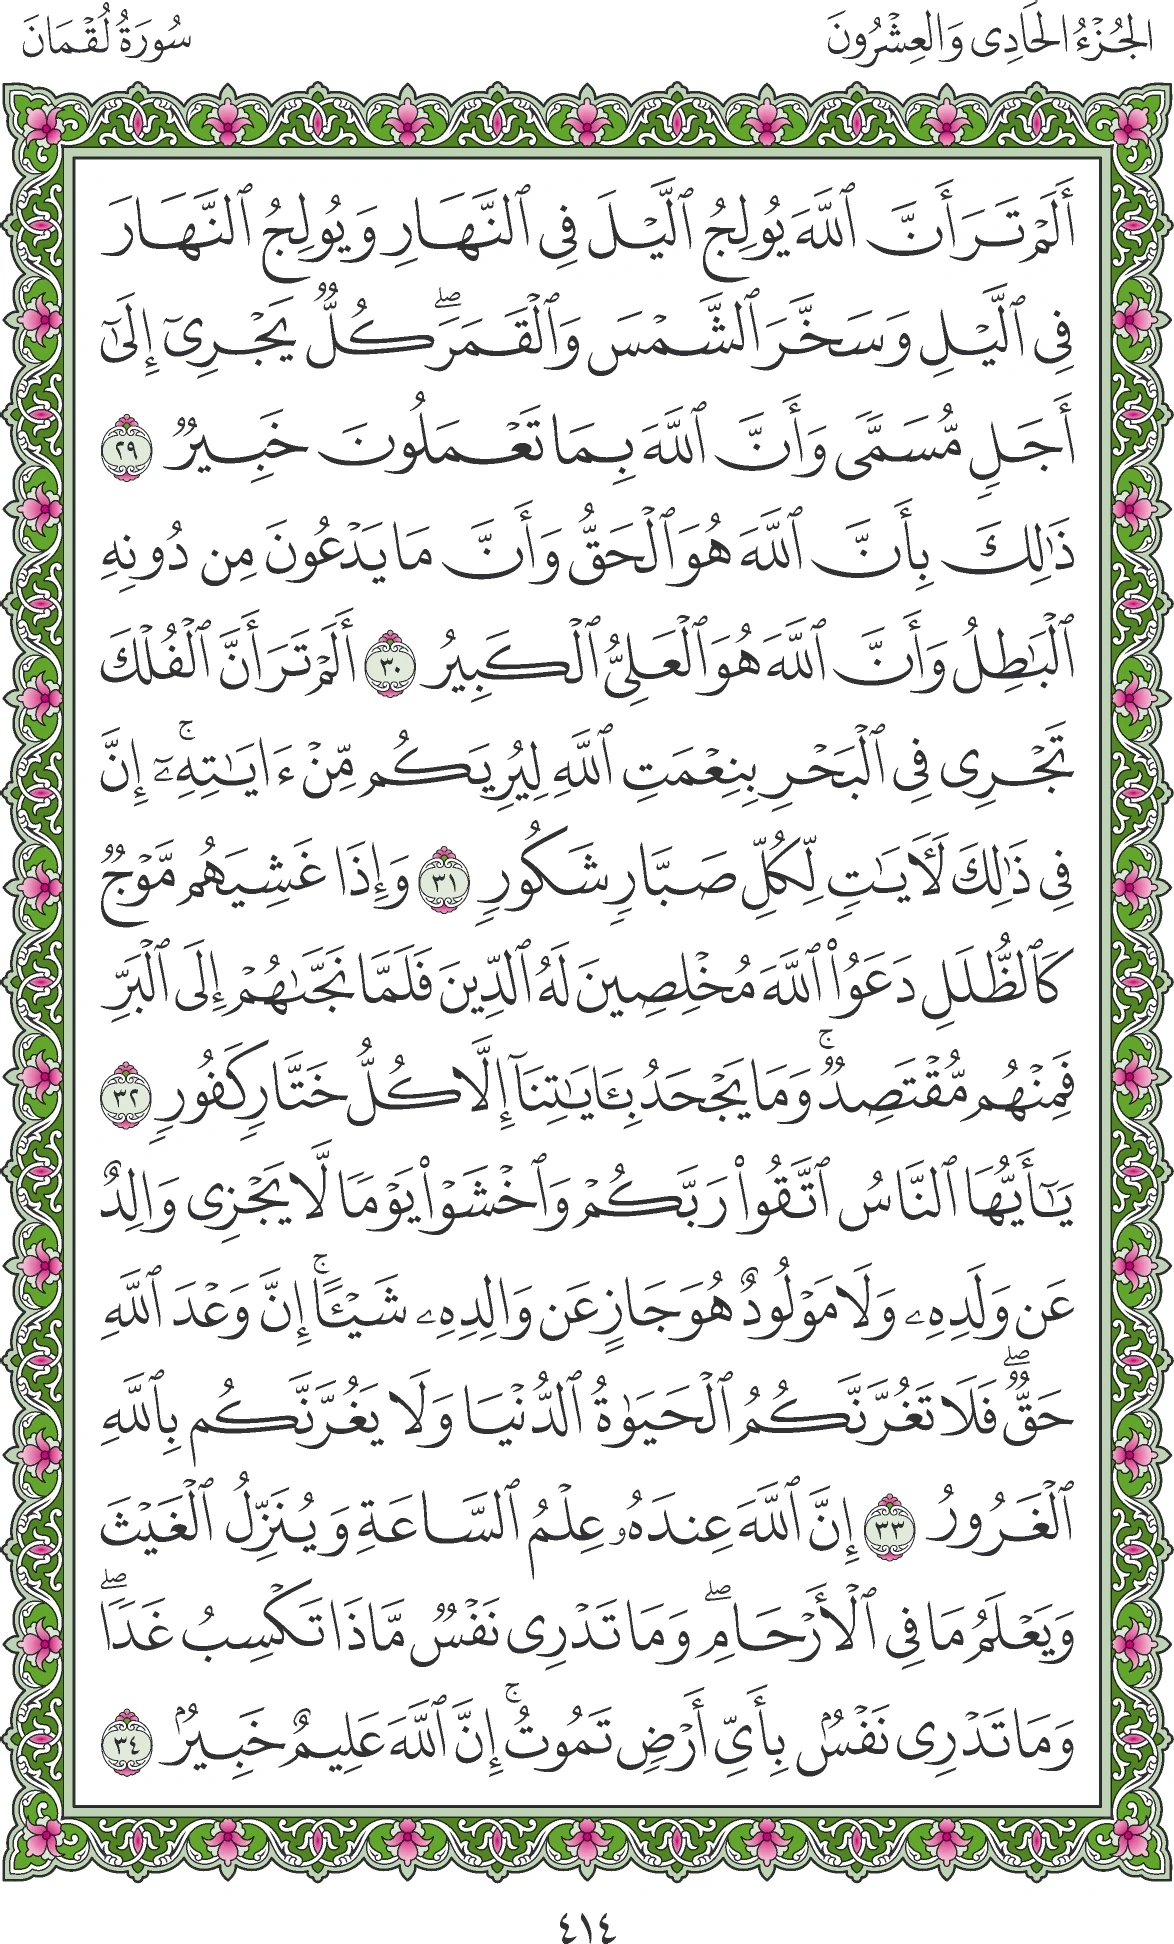 الجُزْءُ الحَادِي وَالعِشْرُونَ
سُورَةُ لُقْمَانَ
أَلَمْ تَرَ أَنَّ ٱللَّهَ يُولِجُ ٱلَّيْلَ فِى ٱلنَّهَارِ وَيُولِجُ ٱلنَّهَارَ
فِى ٱلَّيْلِ وَسَخَّرَ ٱلشَّمْسَ وَٱلْقَمَرَۖ كُلٌّ يَجْرِىٓ إِلَىٰٓ
أَجَلٍ مُّسَمًّى وَأَنَّ ٱللَّهَ بِمَا تَعْمَلُونَ خَبِيرٌ ٢٩
ذَٰلِكَ بِأَنَّ ٱللَّهَ هُوَ ٱلْحَقُّ وَأَنَّ مَا يَدْعُونَ مِن دُونِهِ
ٱلْبَٰطِلُ وَأَنَّ ٱللَّهَ هُوَ ٱلْعَلِىُّ ٱلْكَبِيرُ ٣٠ أَلَمْ تَرَ أَنَّ ٱلْفُلْكَ
تَجْرِى فِى ٱلْبَحْرِ بِنِعْمَتِ ٱللَّهِ لِيُرِيَكُم مِّنْ ءَايَٰتِهِۦٓۚ إِنَّ
فِى ذَٰلِكَ لَأٓيَٰتٍ لِّكُلِّ صَبَّارٍ شَكُورٍ ٣١ وَإِذَا غَشِيَهُم مَّوْجٌ
كَٱلظُّلَلِ دَعَوُا۟ ٱللَّهَ مُخْلِصِينَ لَهُ ٱلدِّينَ فَلَمَّا نَجَّىٰهُمْ إِلَى ٱلْبَرِّ
فَمِنْهُم مُّقْتَصِدٌۚ وَمَا يَجْحَدُ بِـَٔايَٰتِنَآ إِلَّا كُلُّ خَتَّارٍ كَفُورٍ ٣٢
يَٰٓأَيُّهَا ٱلنَّاسُ ٱتَّقُوا۟ رَبَّكُمْ وَٱخْشَوْا۟ يَوْمًا لَّا يَجْزِى وَالِدٌ
عَن وَلَدِهِۦ وَلَا مَوْلُودٌ هُوَ جَازٍ عَن وَالِدِهِۦ شَيْـًٔاۚ إِنَّ وَعْدَ ٱللَّهِ
حَقٌّۖ فَلَا تَغُرَّنَّكُمُ ٱلْحَيَوٰةُ ٱلدُّنْيَا وَلَا يَغُرَّنَّكُم بِٱللَّهِ
ٱلْغَرُورُ ٣٣ إِنَّ ٱللَّهَ عِندَهُۥ عِلْمُ ٱلسَّاعَةِ وَيُنَزِّلُ ٱلْغَيْثَ
وَيَعْلَمُ مَا فِى ٱلْأَرْحَامِۖ وَمَا تَدْرِى نَفْسٌ مَّاذَا تَكْسِبُ غَدًاۖ
وَمَا تَدْرِى نَفْسٌۢ بِأَىِّ أَرْضٍ تَمُوتُۚ إِنَّ ٱللَّهَ عَلِيمٌ خَبِيرٌۢ ٣٤
٤١٤